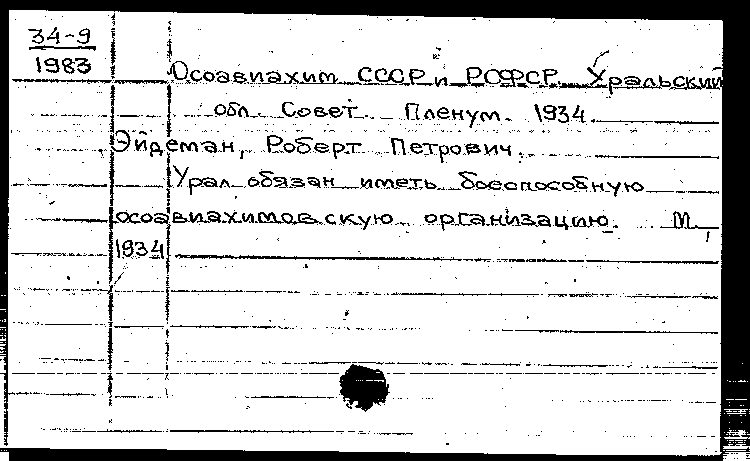 34-9
1983
Осоавиахим СССР и РСФСР. Уральский
обл. Совет. Пленум. 1934.
Эйдеман, Роберт Петрович.
Урал обязан иметь боеспособную
осоавиахимовскую организацию. М.,
1934